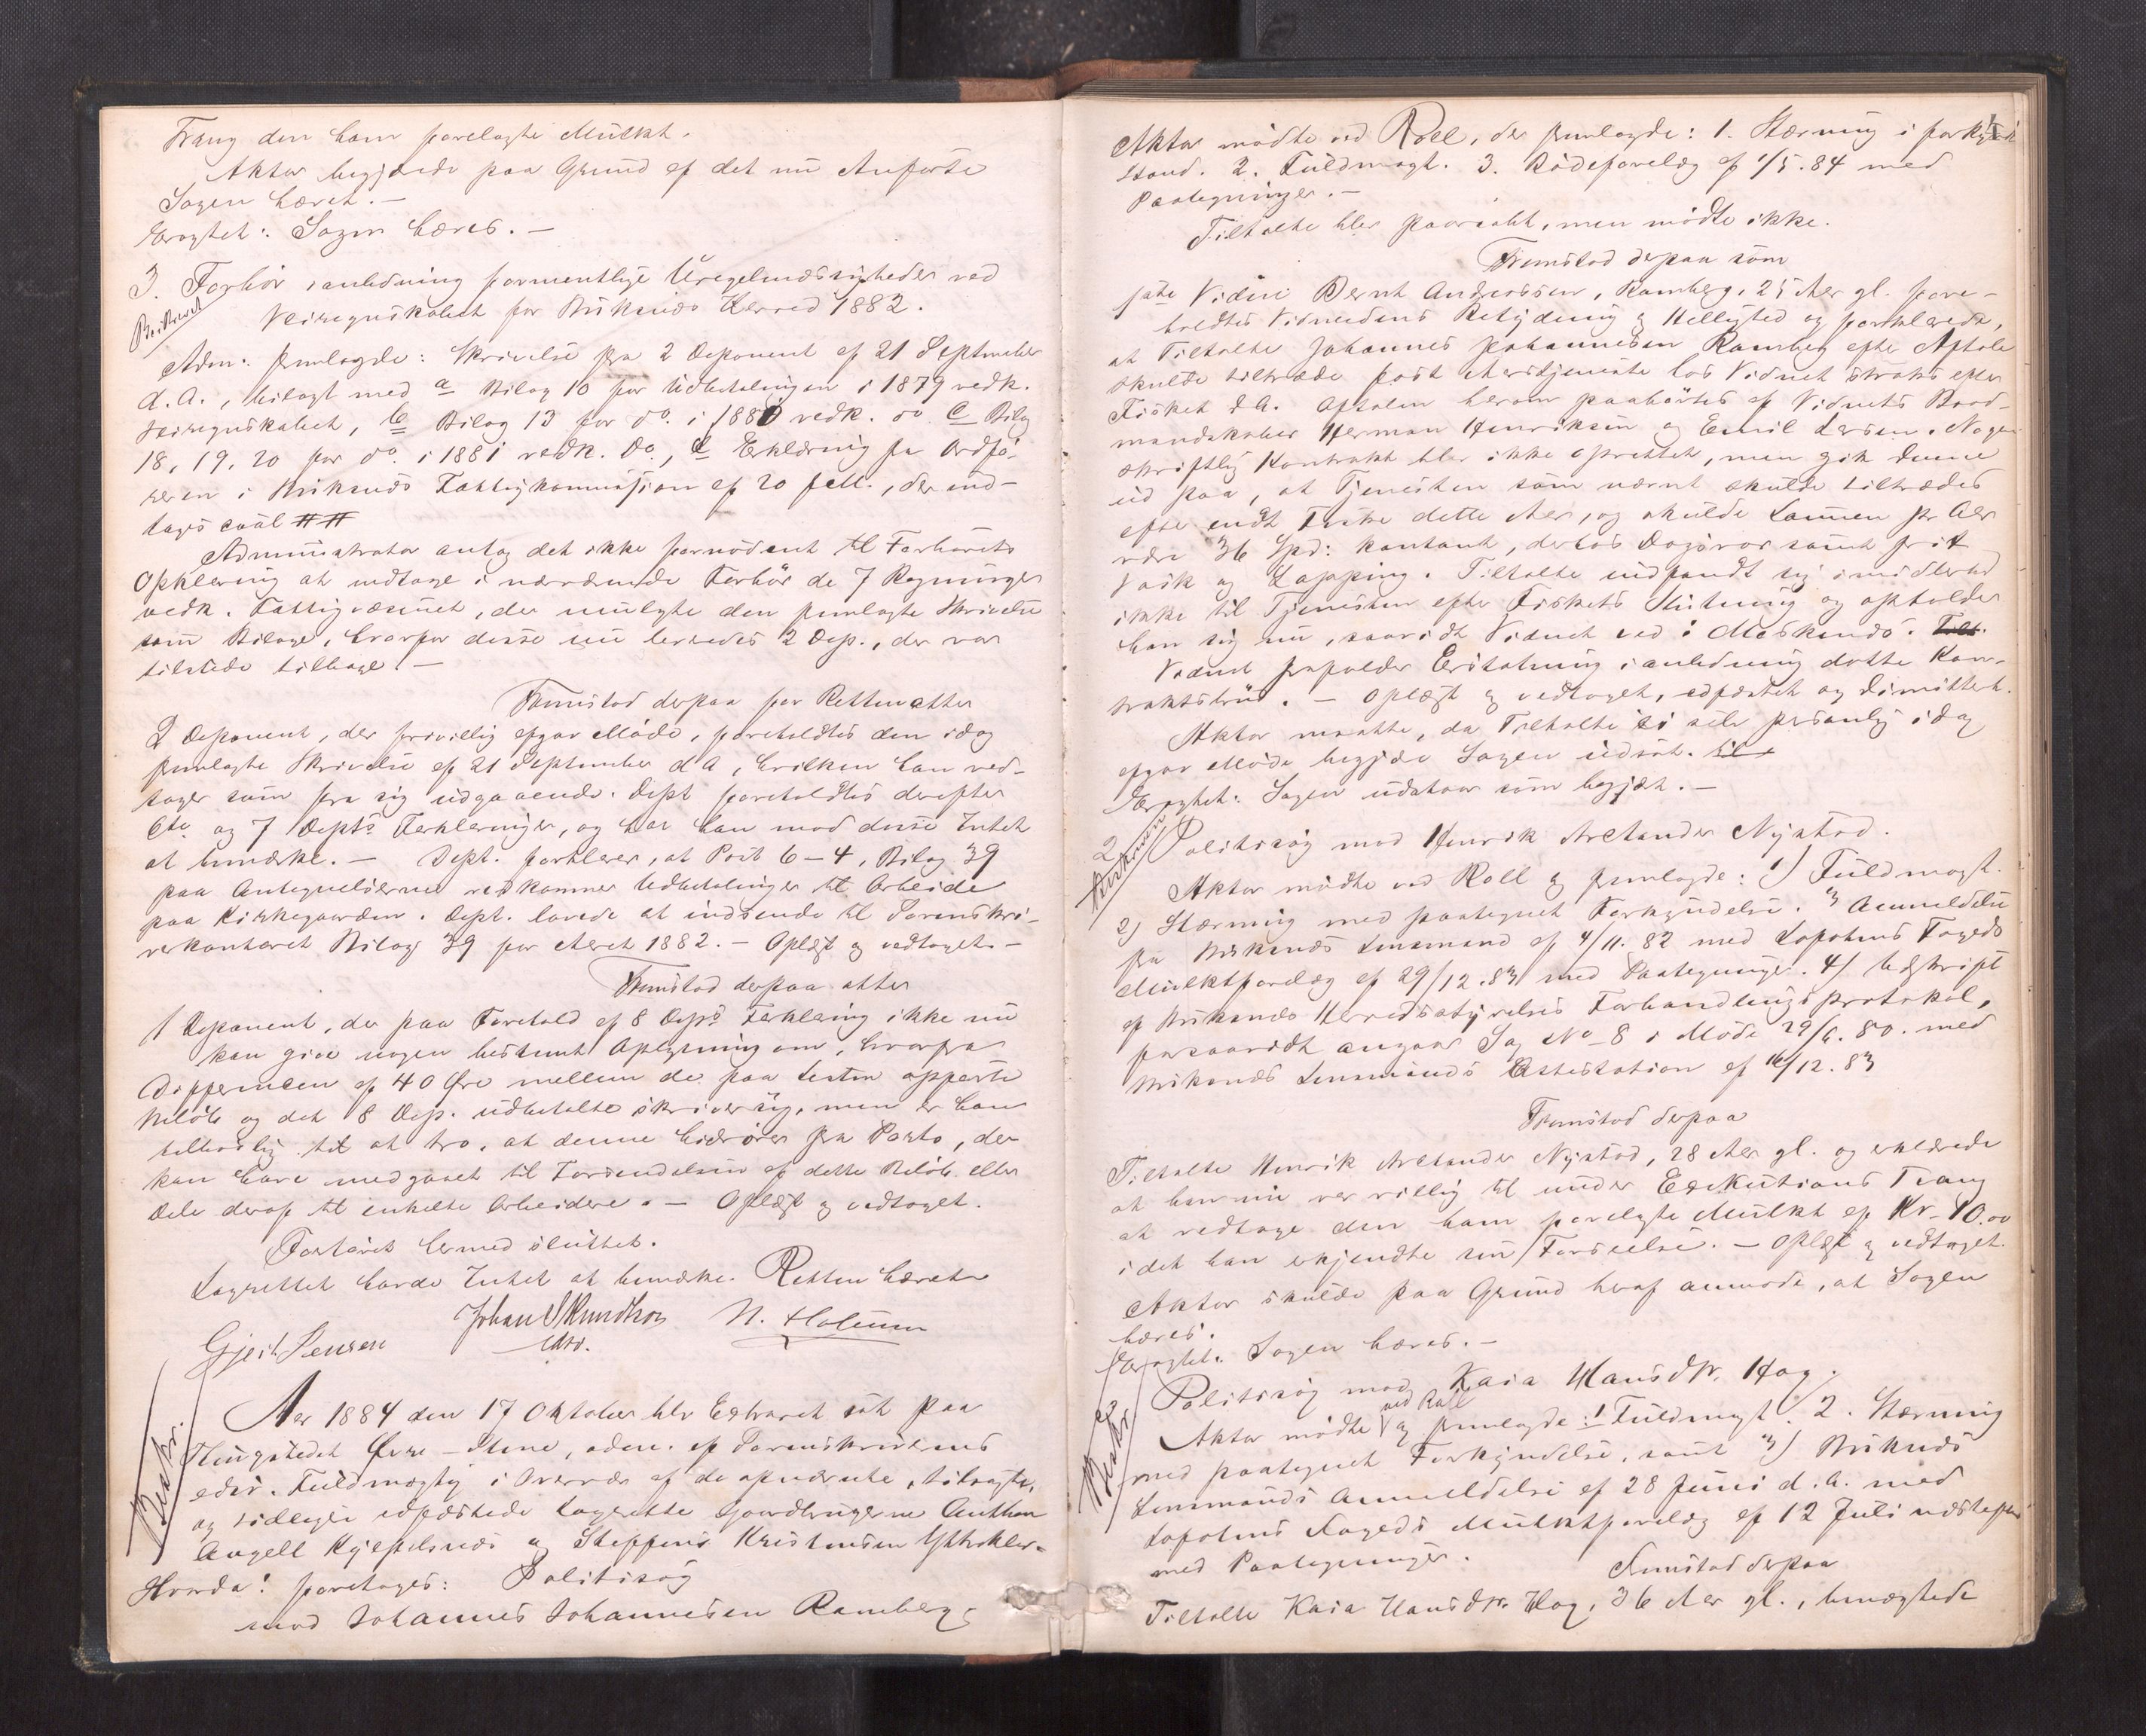 Tvang den ham forelagte Mulkt.
Aktor begjærede paa Grund af det nu Anførte
Sagen hævet. —
Eragtet: Sagen hæves. —
3. Forhør i anledning formentlige Uregelmæssigheder ved
Beskrevet
Veiregnskabet for Buksnæs Herred 1882.
Adm: fremlagde: Skrivelse fra 2 Deponent af 21 September
d. A., bilagt med a Bilag 10 for Udbetalingen i 1879 vedk.
Veiregnskabet, b Bilag 13 for do. i 1880 vedk. do c Bilag
18, 19, 20 for do. i 1881 vedk. do., d Erklæring fra Ordfø-
reren i Buksnæs Fattigkommission af 20 , der ind-
tages saal ##
Administrator antog det ikke fornødent til Forhørets
Opklaring at indtage i nærværende Forhør de 7 Regninger
vedk. Fattigvæsenet, der medfulgte den fremlagte Skrivelse
som Bilage, hvorfor disse nu leveredes 2 Dep., der var
tilstede tilbage. —
Fremstod derpaa for Retten atter
2 Deponent, der frivillig afgav Møde, foreholdtes den idag
fremlagte Skrivelse af 21 September d A, hvilken han ved-
tager som fra sig udgaaende. Dept foreholdtes derefter
6te og 7 Depts Forklaringer, og har han mod disse Intet
at bemærke. — Dept. forklarer, at Post 6–4, Bilag 39
paa Antegnelserne vedkommer Udbetalinger til Arbeide
paa Kirkegaarden. Dept. lovede at indsende til Sorenskri-
verkontoret Bilag 39 for Aaret 1882. — Oplæst og vedtaget. —
Fremstod derpaa atter
1 Deponent, der paa Forehold af 8 Deps Forklaring ikke nu
kan give nogen bestemt Oplysning om, hvorfra
Differencen af 40 Øre mellem de paa Listen opførte
Beløb og det 8 Dep. udbetalte skriver sig, men er han
tilbøielig til at tro, at denne hidrører fra Porto, der
kan have medgaaet til Forsendelsen af dette Beløb eller
Dele deraf til enkelte Arbeidere. — Oplæst og vedtaget.
Forhøret hermed sluttet.
Lagrettet havde Intet at bemærke. Retten hævet
Johan S Knudsen N. Holum
Gjert Jensen
Aar 1884 den 17 Oktober blev Extraret sat paa
Beskr.
Thingstedet Øvre–Stene, adm. af Sorenskriverens
edsv. Fuldmægtig i Overvær af de opnævnte, tilsagte,
og tidligere edfæstede Lagrette Gaardbrugerne Anthon
Angell Kjeftelsnæs og Steffens Kristensen
Hvorda! foretages: Politisag
mod Johannes Johannesen Ramberg
Aktor mødte ved Roll, der fremlagde: 1. Stævning i forkyndt
Stand. 2. Fuldmagt. 3. Bødeforelæg af 1/5. 84 med
Paategninger. —
Tiltalte blev paaraabt, men mødte ikke.
Fremstod derpaa som
1ste Vidne Bernt Andreassen, Ramberg, 25 Aar gl. fore-
holdtes Vidneedens Betydning og Hellighed og forklarede,
at Tiltalte Johannes Johannesen Ramberg efter Aftale
skulde tiltræde fast Aarstjeneste hos Vidnet straks efter
Fisket d. A. Aftalen herom paahørtes af Vidnets Baad-
mandskaber Herman Henriksen og Emil Larsen. Nogen
skriftlig Kontrakt blev ikke oprettet, men gik denne
ud paa, at Tjenesten som nævnt skulde tiltrædes
efter endt Fiske dette Aar, og skulde Lønnen pr Aar
være 36 Spd: kontant, derhos Dagsvar samt frit
Vask og Lapping. Tiltalte indfandt sig imidlertid
ikke til Tjenesten efter Fiskets Slutning og opholder
han sig nu, saavidt Vidnet ved i Moskenæs.
Vidnet frafalder Erstatning i anledning dette Kon-
traktsbrud. — Oplæst og vedtaget, edfæstet og Dimitteret.
Aktor maatte, da Tiltalte ei selv personlig idag
afgav Møde begjære Sagen udsat.
Eragtet: Sagen udstaar som begjært. —
2 Politisag mod Henrik Arctander Nystad.
Aktor mødte ved Roll og fremlagde: 1) Fuldmagt.
2) Stævning med paategnet Forkyndelse. 3) Anmeldelse
fra Buksnæs Lensmand af 4/11. 82 med Lofotens Fogeds
Mulktforelæg af 29/12. 83 med Paategninger. 4) Udskrift
af Buksnæs Herredsstyrelses Forhandlingsprotokol,
forsaavidt angaar Sag No 8 i Møde 29/6. 80. med
Buksnæs Lensmands Attestation af 16/12. 83
Fremstod derpaa
Tiltalte Henrik Arctander Nystad, 28 Aar gl. og erklærede
at han nu var villig til under Exekutions Tvang
at vedtage den ham forelagte Mulkt af Kr. 10.00
idet han erkjendte sin Forseelse. — Oplæst og vedtaget.
Aktor skulde paa Grund heraf anmode, at Sagen
hæves.
Eragtet: Sagen hæves. —
3 Politisag mod Kaia Hansdtr. Hag.
Beskr.
ved Roll
Aktor mødte og fremlagde: 1 Fuldmagt. 2. Stævning
med paategnet Forkyndelse, samt 3) Buksnæs
Lensmands Anmeldelse af 28 Juni d. A. med
Lofotens Fogeds Mulktforelæg af 12 Juli næstefter
med Paategninger.
Fremstod derpaa
Tiltalte Kaia Hansdtr. Hag, 36 Aar gl., benægtede